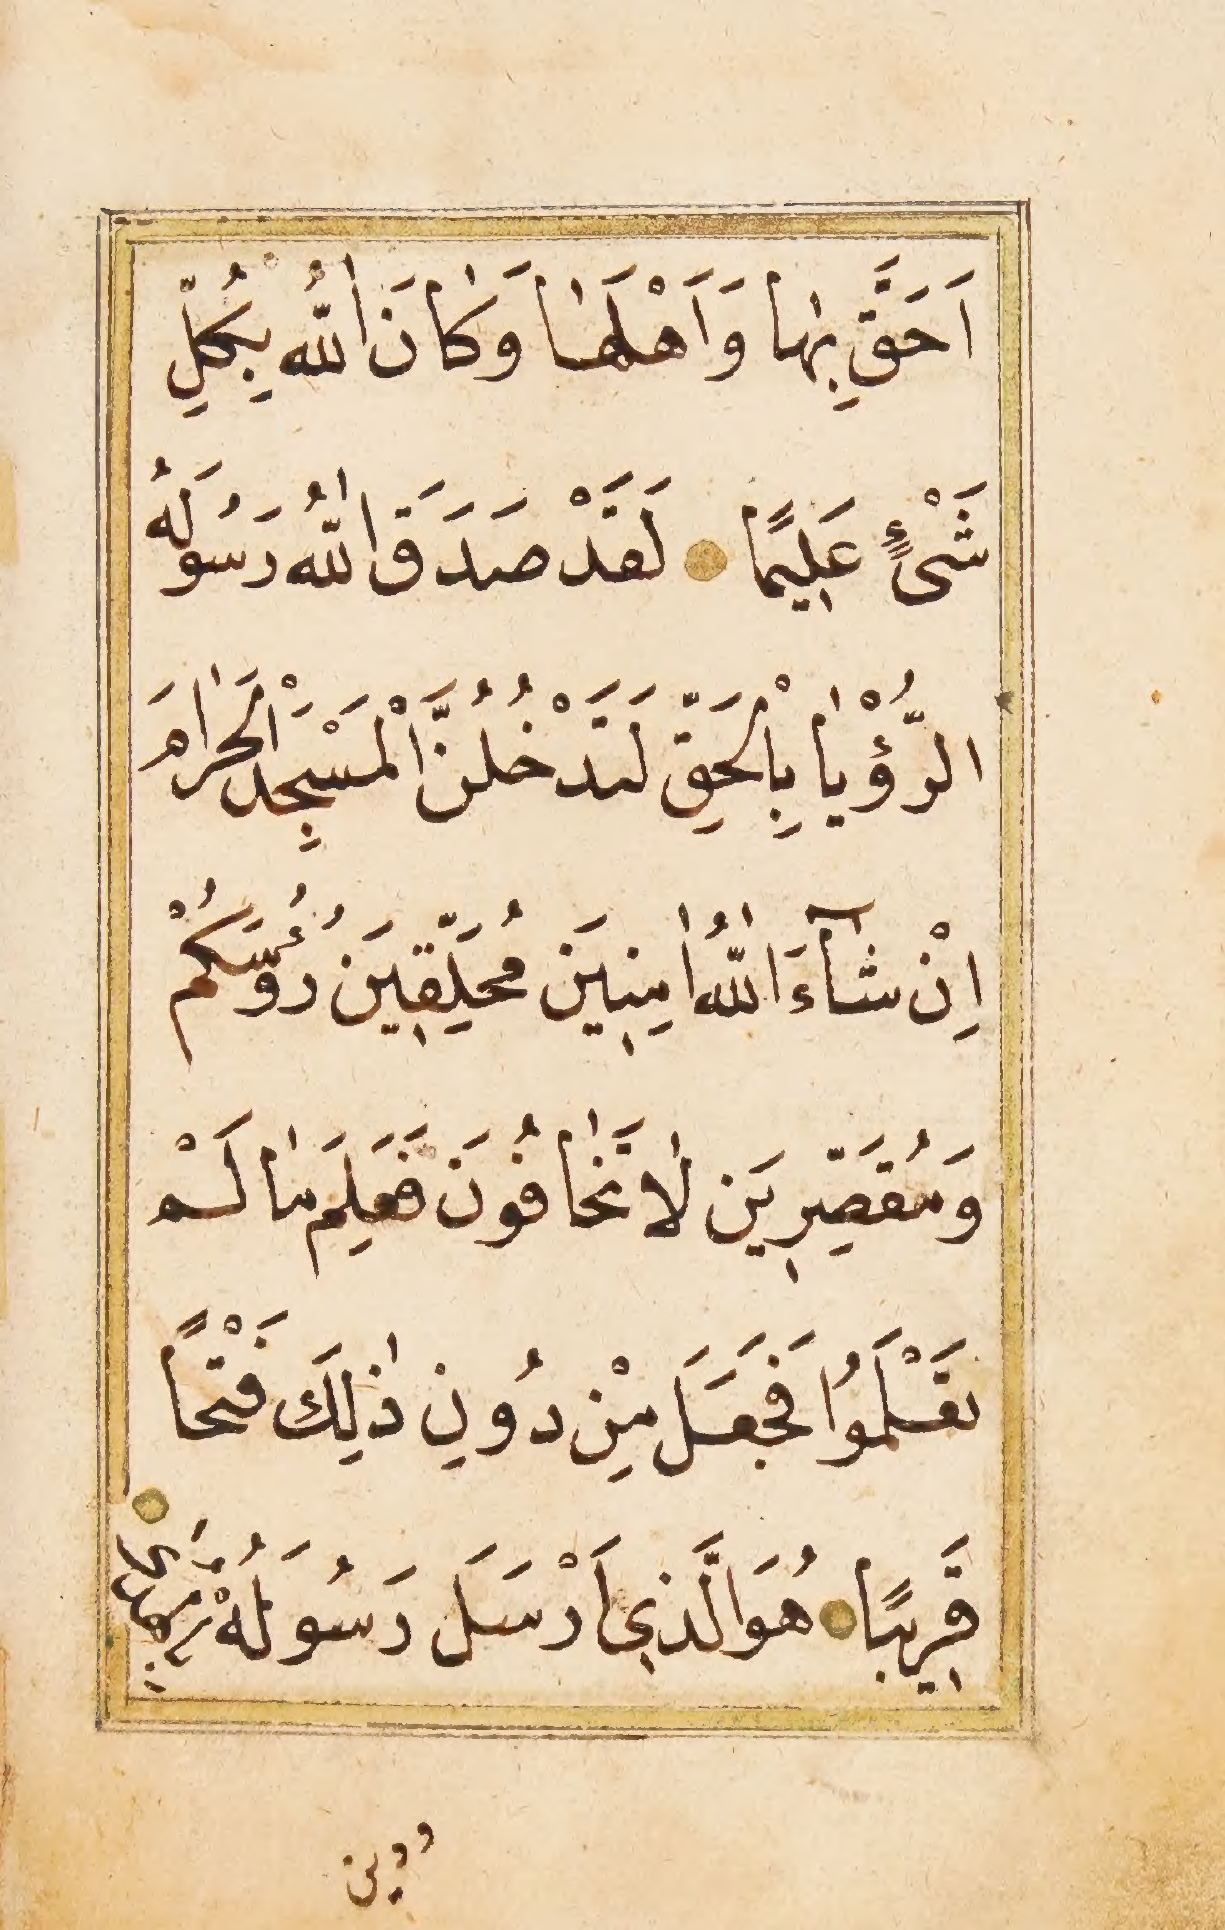 اَحَقَّ بِهٰا وَاَهْلَهٰا وَكٰانَ اللّٰهُ بِكُلِّ
شَیْءٍ عَلِيمًا لَقَدْ صَدَقَ اللّٰهُ رَسُولَهُ
الرُّؤْيٰا بِالْحَقِّ لَتَدْخُلُنَّ الْمَسْجِدَ الْحَرٰامَ
اِنْ شٰآءَ اللّٰهُ اٰمِنِينَ مُحَلِّقِينَ رُؤُسَكُمْ
وَمُقَصِّرِينَ لٰا تَخٰافُونَ فَعَلِمَ مٰا لَمْ
تَعْلَمُوا فَجَعَلَ مِنْ دُونِ ذٰلِكَ فَتْحًا
قَرِيبًا هُوَالَّذِي اَرْسَلَ رَسُولَهُ بِالْهُدٰى
ودين